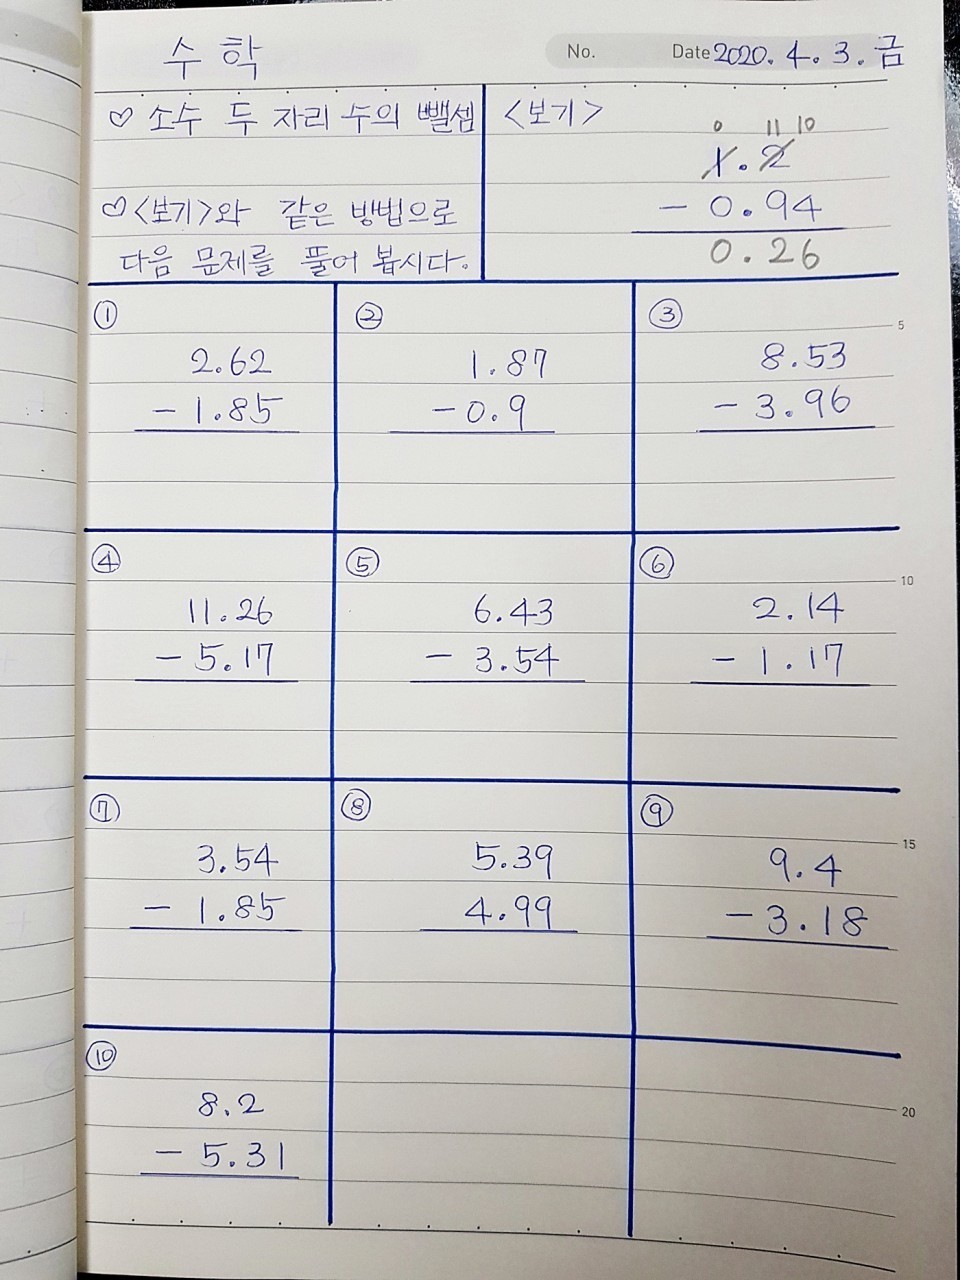 수 학
No.
Date 2020. 4. 3. 금
♡ 소수 두 자리 수의 뺄셈
♡ <보기>와 같은 방법으로
다음 문제를 풀어 봅시다.
<보기>
0 11 10
1.2
- 0.94
0.26
①
2.62
- 1.85
②
1.87
- 0.9
③
8.53
- 3.96
5
④
11.26
- 5.17
⑤
6.43
- 3.54
⑥
2.14
- 1.17
10
⑦
3.54
- 1.85
⑧
5.39
4.99
⑨
9.4
- 3.18
15
⑩
8.2
- 5.31
20